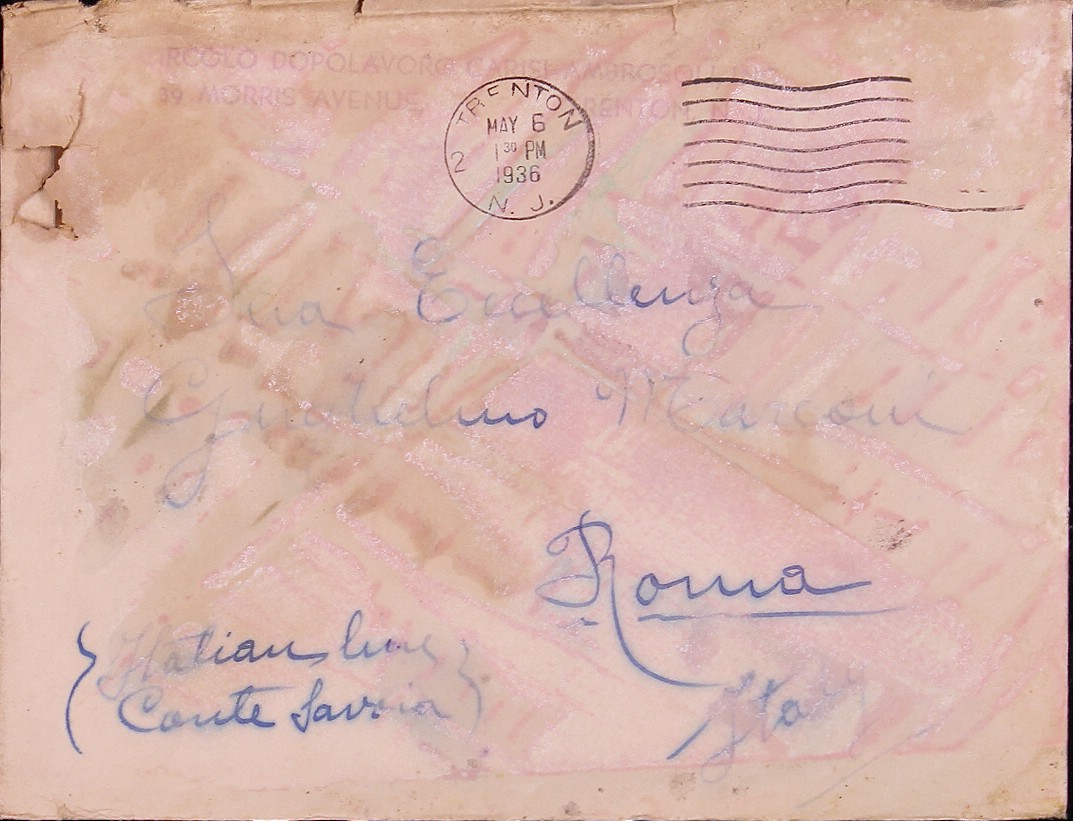 CIRCOLO DOPOLAVORO CARISI-AMBROSOLI
39 MORRIS AVENUE TRENTON, N. J.
TRENTON
2
MAY 6
1 30 PM
1936
N. J.
Sua Eccellenza
Guglielmo Marconi
Roma
Italy
(Italian line
Conte Savoia)